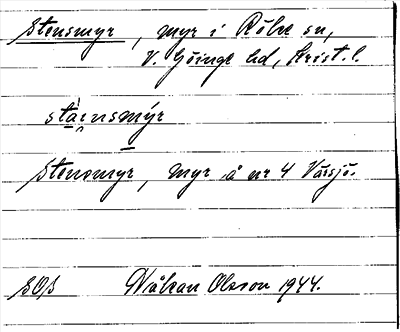 Stensmyr, myr i Röke sn,
V. Göinge hd, Krist. l.
stainsmýr
Stensmyr, myr å nr 4 Värsjö.
SOB Håkan Olsson 1944.